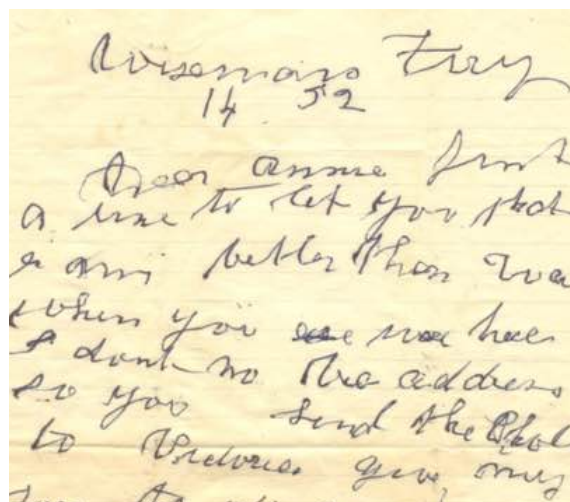 Wisemans Ferry
14 52
Dear annie Just
a line to let you that
am better than I was
when you was here
I dont no the address
so you send the
to Victoria give my